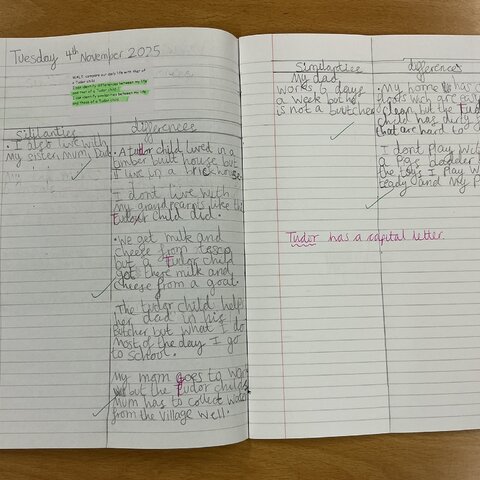 Tuesday 4th November 2025
WALT: compare our daily life with that of
a Tudor child.
I can identify differences between my life
and that of a Tudor child.
I can identify similarities between my life
and those of a Tudor child.
similarities
• I also live with
My sister, Mum, Dad.
differences
• A Tudor child lived in a
timber built house but
I live in a brick house.
I dont live with
my grandparents like the
Tudor child did.
• We get milk and
cheese from tesco
but a Tudor child
got there milk and
cheese from a goat.
The tudor child help
her dad in his
butcher but what I do
most of the day I go
to school.
My mom goes to work
but the Tudor childs
Mum has to collect water
from the village well.
Similarities
My dad
works 6 days
a week but he
is not a butcher
differences
• My home has c
floors wich are easy
clean but the Tudo
child has dirty
that are hard to c
I dont play with
a Pigs bladder
the toys I play w
teddy and my P
Tudor has a capital letter.